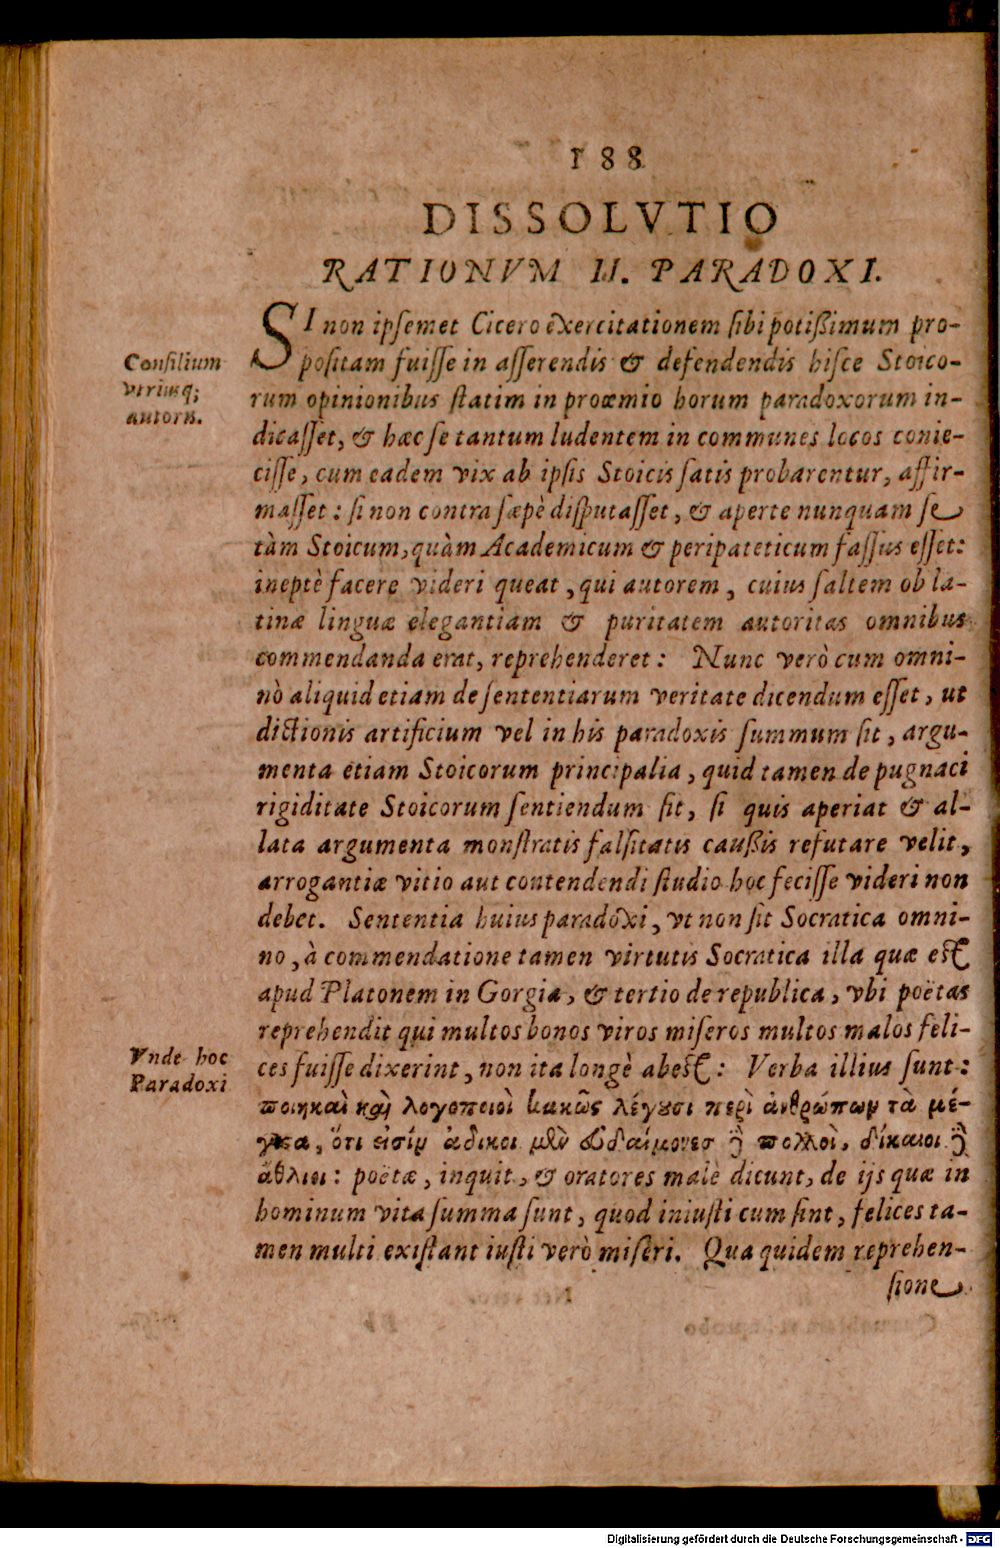 188
DISSOLVTIO
RATIONVM II. PARADOXI.
SI non ipsemet Cicero exercitationem sibi potißimum pro-
positam fuisse in asserendis & defendendis hisce Stoico-
rum opinionibus statim in proœmio horum paradoxorum in-
dicasset, & hæc se tantum ludentem in communes locos conie-
cisse, cum eadem vix ab ipsis Stoicis satis probarentur, affir-
masset: si non contra sæpè disputasset, & aperte nunquam se
tàm Stoicum, quàm Academicum & peripateticum fassus esset:
ineptè facere videri queat, qui autorem, cuius saltem ob la-
tinæ linguæ elegantiam & puritatem autoritas omnibus
commendanda erat, reprehenderet: Nunc verò cum omni-
nò aliquid etiam de sententiarum veritate dicendum esset, ut
dictionis artificium vel in his paradoxis summum sit, argu-
menta etiam Stoicorum principalia, quid tamen de pugnaci
rigiditate Stoicorum sentiendum sit, si quis aperiat & al-
lata argumenta monstratis falsitatis caußis refutare velit,
arrogantiæ vitio aut contendendi studio hoc fecisse videri non
debet. Sententia huius paradoxi, vt non sit Socratica omni-
no, à commendatione tamen virtutis Socratica illa quæ est
apud Platonem in Gorgia, & tertio de republica, vbi poëtas
reprehendit qui multos bonos viros miseros multos malos feli-
ces fuisse dixerint, non ita longè abest: Verba illius sunt:
ποιηκαὶ καὶ λογοποιοὶ κακῶς λέγουσι περὶ ἀνθρώπων τὰ μέ-
γιςα, ὅτι εἰσὶν ἄδικοι μὲν εὐδαίμονες ἢ πολλοὶ, δίκαιοι ἢ
ἄθλιοι: poëtæ, inquit, & oratores malè dicunt, de ijs quæ in
hominum vita summa sunt, quod iniusti cum sint, felices ta-
men multi existant iusti verò miseri. Qua quidem reprehen-
sione
Consilium
vtriusq;
autoris.
Vnde hoc
Paradoxi
Digitalisierung gefördert durch die Deutsche Forschungsgemeinschaft - DFG